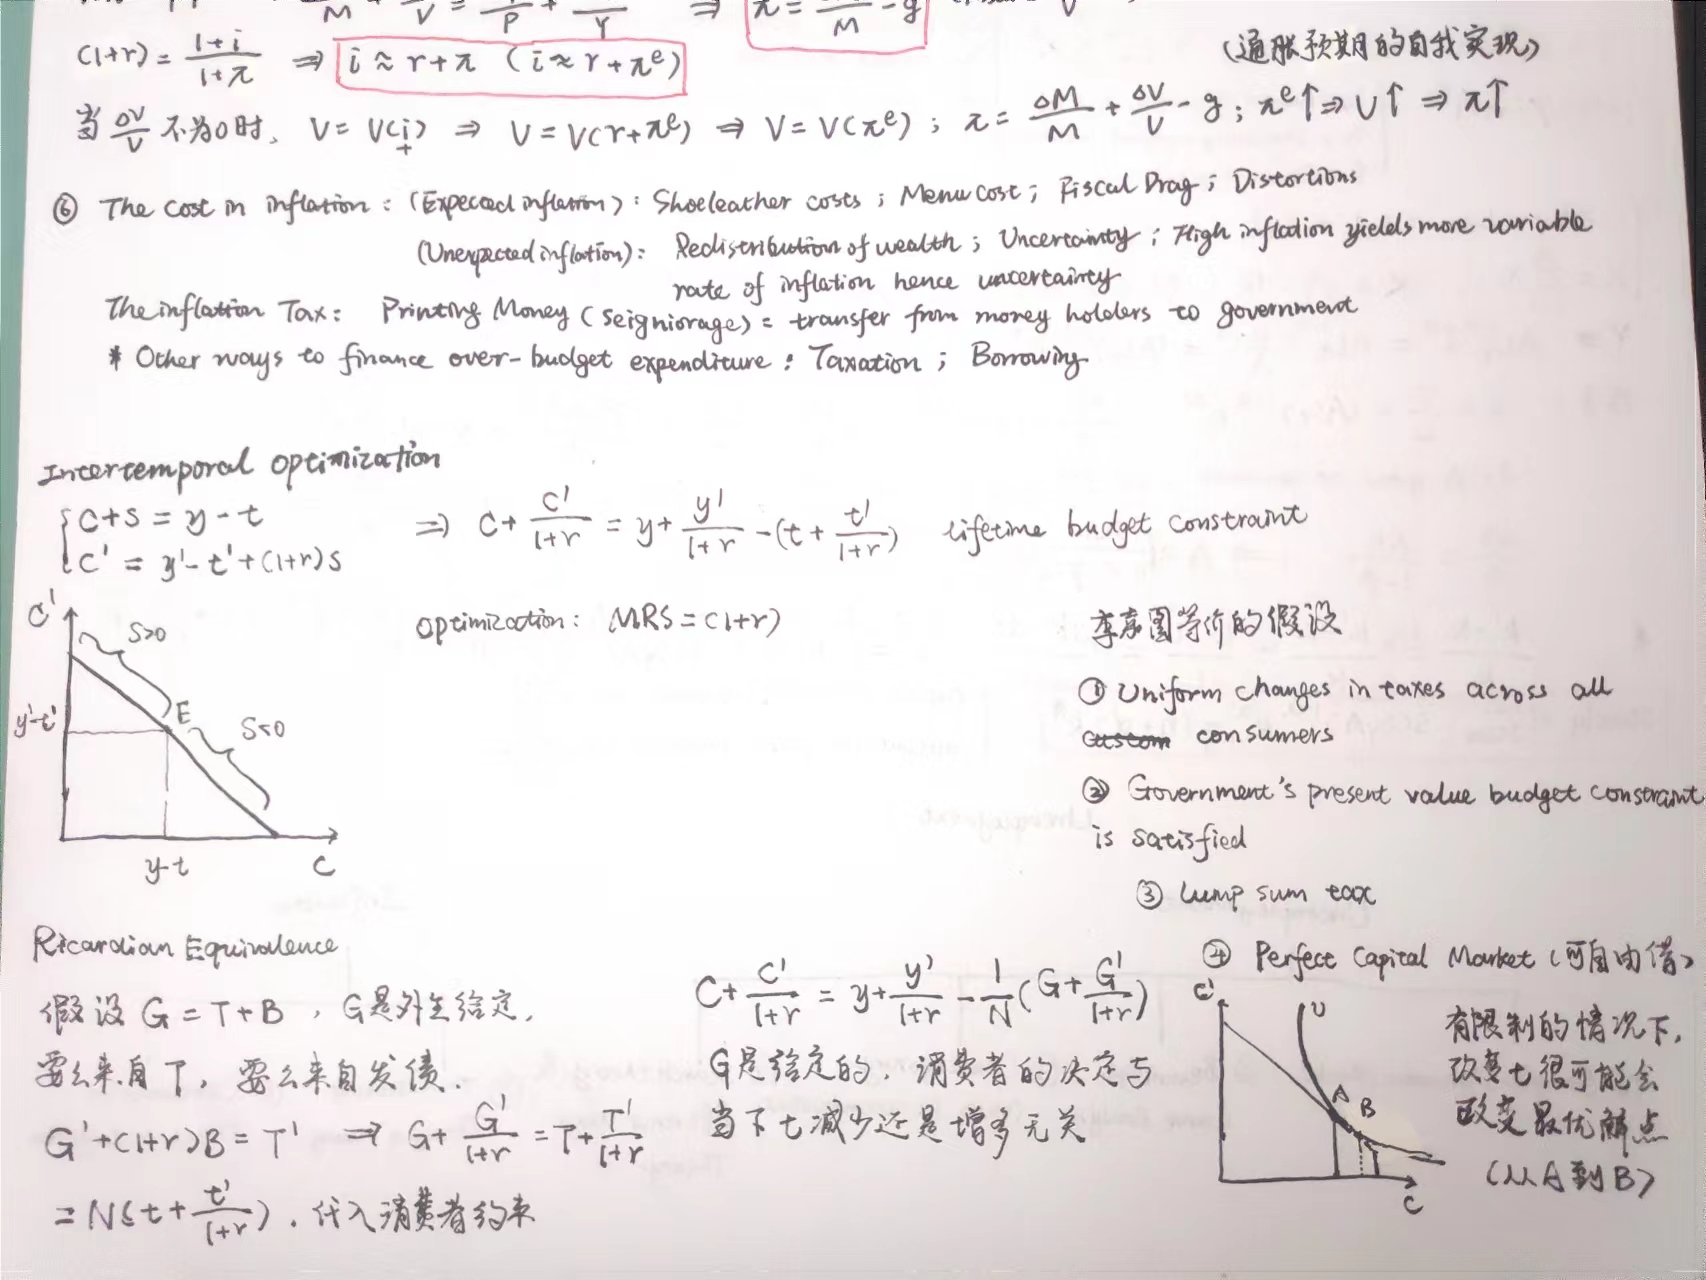 M + V = P + Y ⇒ π = M - g
(1+r) = (1+i)/(1+π) ⇒ i ≈ r+π ( i ≈ r+πᵉ)
(通胀预期的自我实现)
当 ΔV/V 不为0时, V = V(i)+ ⇒ V = V(r+πᵉ) ⇒ V = V(πᵉ) ; π = ΔM/M + ΔV/V - g ; πᵉ↑ ⇒ V↑ ⇒ π↑
⑥ The cost in inflation : (Expected inflation) : Shoeleather costs ; Menu cost ; Fiscal Drag ; Distortions
(Unexpected inflation) : Redistribution of wealth ; Uncertainty ; High inflation yields more variable
rate of inflation hence uncertainty
The inflation Tax : Printing Money (Seigniorage) = transfer from money holders to government
* Other ways to finance over-budget expenditure : Taxation ; Borrowing
Intertemporal optimization
{ C+S = y-t
C' = y'-t'+(1+r)S
⇒ C + C'/(1+r) = y + y'/(1+r) - (t + t'/(1+r)) lifetime budget constraint
optimization : MRS = (1+r)
C'
S>0
E
S<0
y'-t'
y-t
C
李嘉图等价的假设
① Uniform changes in taxes across all
custom consumers
② Government's present value budget constraint
is satisfied
③ lump sum tax
④ Perfect Capital Market (可自由借)
Ricardian Equivalence
假设 G = T+B , G是外生给定,
要么来自T, 要么来自发债.
G'+(1+r)B = T' ⇒ G + G'/(1+r) = T + T'/(1+r)
= N(t + t'/(1+r)), 代入消费者约束
C + C'/(1+r) = y + y'/(1+r) - 1/N (G + G'/(1+r))
G是给定的, 消费者的决定与
当下t减少还是增多无关
C'
U
A
B
C
有限制的情况下,
改变t很可能会
改变最优解点
(从A到B)